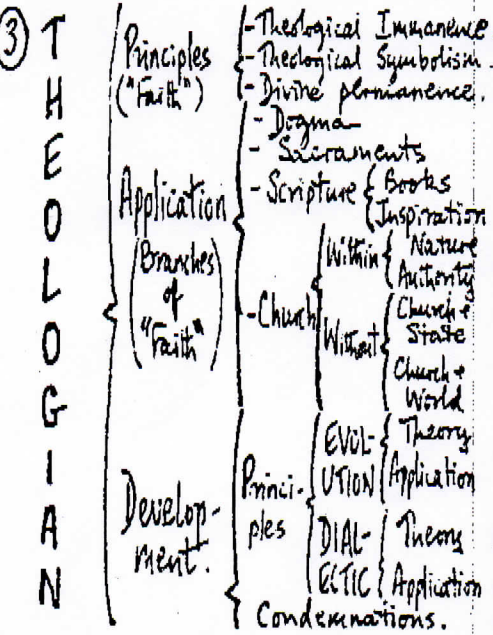 ③ THEOLOGIAN
Principles
("Faith")
- Theological Immanence
- Theological Symbolism.
- Divine permanence.
Application
(Branches
of
"Faith")
- Dogma
- Sacraments
- Scripture
Books
Inspiration
- Church
Within
Nature
Authority
Without
Church +
State
Church +
World
Develop-
ment.
Princi-
ples
EVOL-
UTION
Theory
Application
DIAL-
ECTIC
Theory
Application
Condemnations.